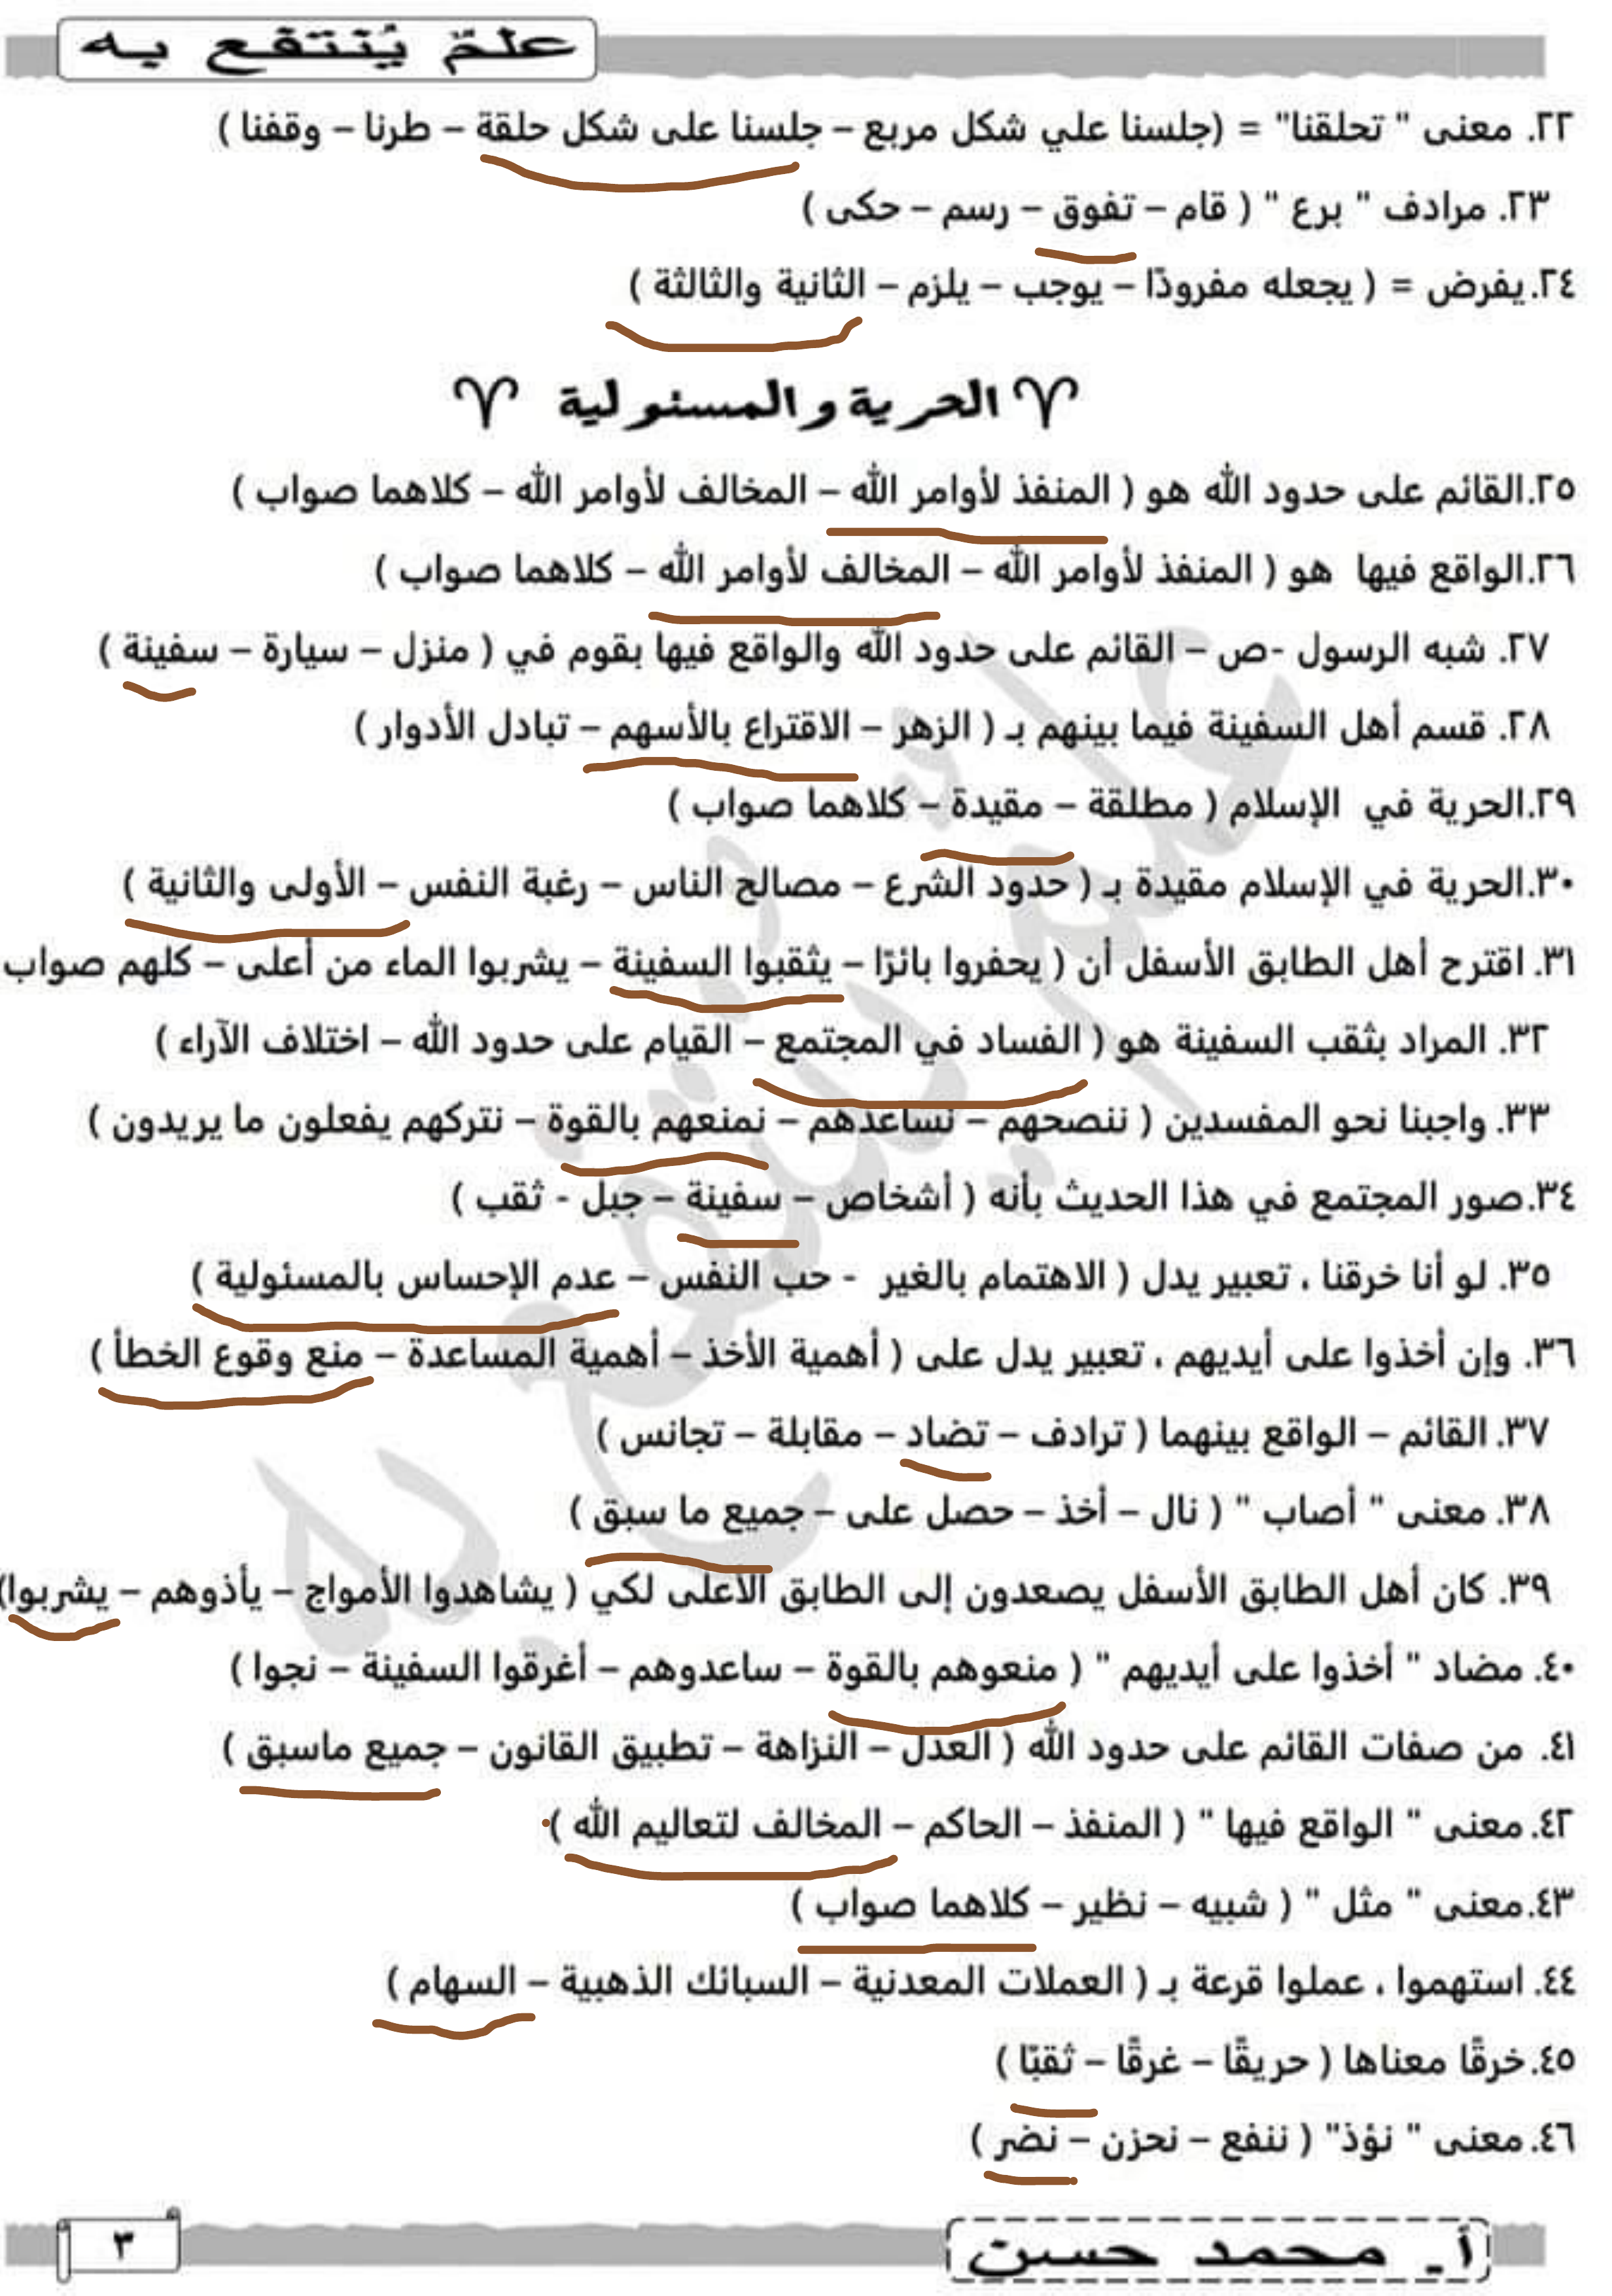 علمٌ يُنتفع به
٢٢. معنى " تحلقنا" = (جلسنا علي شكل مربع – جلسنا على شكل حلقة – طرنا – وقفنا )
٢٣. مرادف " برع " ( قام – تفوق – رسم – حكى )
٢٤.يفرض = ( يجعله مفرودًا – يوجب – يلزم – الثانية والثالثة )
الحرية والمسئولية
٢٥.القائم على حدود الله هو ( المنفذ لأوامر الله – المخالف لأوامر الله – كلاهما صواب )
٢٦.الواقع فيها هو ( المنفذ لأوامر الله – المخالف لأوامر الله – كلاهما صواب )
٢٧. شبه الرسول -ص – القائم على حدود الله والواقع فيها بقوم في ( منزل – سيارة – سفينة )
٢٨. قسم أهل السفينة فيما بينهم بـ ( الزهر – الاقتراع بالأسهم – تبادل الأدوار )
٢٩.الحرية في الإسلام ( مطلقة – مقيدة – كلاهما صواب )
٣٠.الحرية في الإسلام مقيدة بـ ( حدود الشرع – مصالح الناس – رغبة النفس – الأولى والثانية )
٣١. اقترح أهل الطابق الأسفل أن ( يحفروا بائرًا – يثقبوا السفينة – يشربوا الماء من أعلى – كلهم صواب
٣٢. المراد بثقب السفينة هو ( الفساد في المجتمع – القيام على حدود الله – اختلاف الآراء )
٣٣. واجبنا نحو المفسدين ( ننصحهم – نساعدهم – نمنعهم بالقوة – نتركهم يفعلون ما يريدون )
٣٤.صور المجتمع في هذا الحديث بأنه ( أشخاص – سفينة – جبل - ثقب )
٣٥. لو أنا خرقنا ، تعبير يدل ( الاهتمام بالغير - حب النفس – عدم الإحساس بالمسئولية )
٣٦. وإن أخذوا على أيديهم ، تعبير يدل على ( أهمية الأخذ – أهمية المساعدة – منع وقوع الخطأ )
٣٧. القائم – الواقع بينهما ( ترادف – تضاد – مقابلة – تجانس )
٣٨. معنى " أصاب " ( نال – أخذ – حصل على – جميع ما سبق )
٣٩. كان أهل الطابق الأسفل يصعدون إلى الطابق الأعلى لكي ( يشاهدوا الأمواج – يأذوهم – يشربوا)
٤٠. مضاد " أخذوا على أيديهم " ( منعوهم بالقوة – ساعدوهم – أغرقوا السفينة – نجوا )
٤١. من صفات القائم على حدود الله ( العدل – النزاهة – تطبيق القانون – جميع ماسبق )
٤٢.معنى " الواقع فيها " ( المنفذ – الحاكم – المخالف لتعاليم الله )
٤٣.معنى " مثل " ( شبيه – نظير – كلاهما صواب )
٤٤. استهموا ، عملوا قرعة بـ ( العملات المعدنية – السبائك الذهبية – السهام )
٤٥.خرقًا معناها ( حريقًا – غرقًا – ثقبًا )
٤٦.معنى " نؤذ" ( ننفع – نحزن – نضر )
أ. محمد حسن
٣